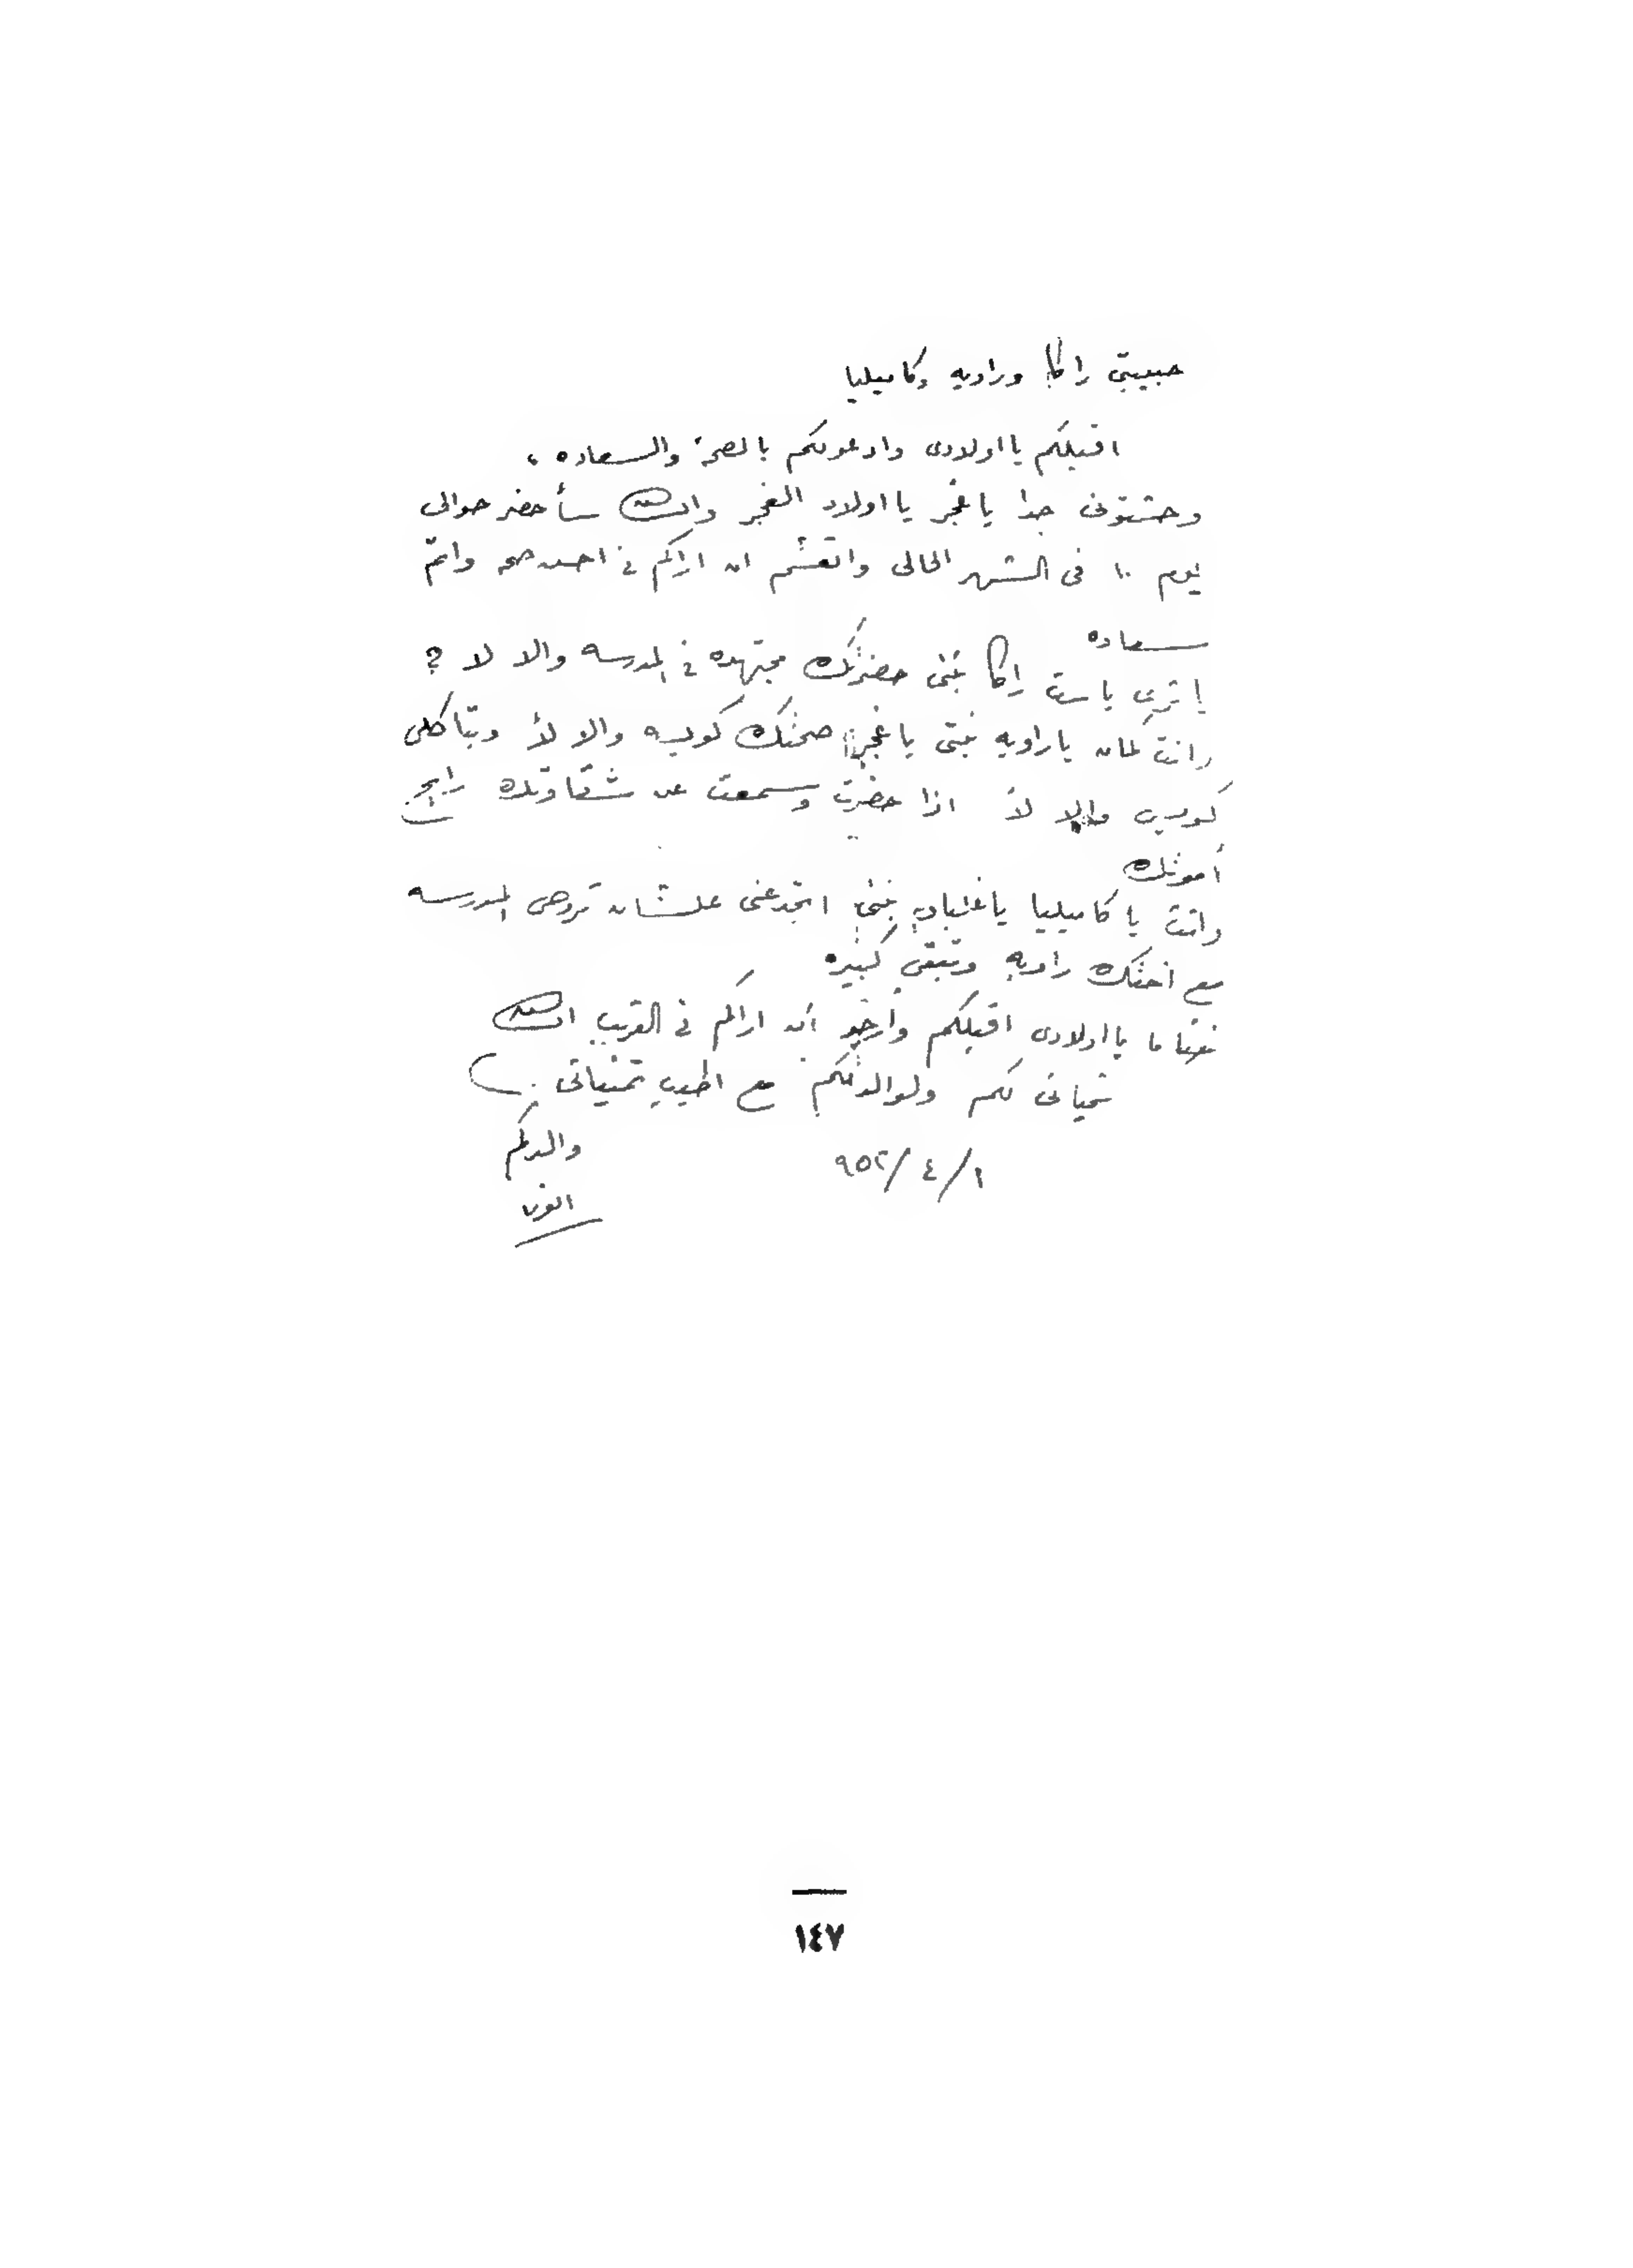 حبيبتى راكا وراويه وكاميليا
اقبلكم يا اولادى وادعولكم بالصحة والسعاده ،
وحشتونى جدا يا غجر يا اولاد الغجر وانشالله سأحضر حوالى
يوم ١٠ فى الشهر الحالى واتعشم ان اراكم فى احسن صحه واتم
سعاده
يا ترى يا ست راكا بنتى حضرتك مجتهده فى المدرسه والا لا ؟
وانت كمان يا راويه بنتى يا غجر صحتك كويسه والا لأ وبتاكلى
كويس والا لأ اذا حضرت وسمعت عن شقاوتك رايح
أموتك
وانت يا كاميليا يا غلباويه بنتى اتجدعنى علشان تروحى المدرسه
مع اختك راويه وتبقى كبيره
ختاما يا اولادى اقبلكم وأرجو أن اراكم فى القريب انشالله
تحياتى لكم ولوالدتكم مع اطيب تمنياتى
والدكم
١/٤/٩٥٢
انور
١٤٧